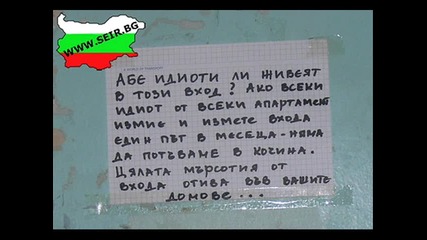 WWW.SEIR.BG
АБЕ ИДИОТИ ЛИ ЖИВЕЯТ
В ТОЗИ ВХОД? АКО ВСЕКИ
ИДИОТ ОТ ВСЕКИ АПАРТАМЕНТ
ИЗМИЕ И ИЗМЕТЕ ВХОДА
ЕДИН ПЪТ В МЕСЕЦА - НЯМА
ДА ПОТЪВАМЕ В КОЧИНА.
ЦЯЛАТА МЪРСОТИЯ ОТ
ВХОДА ОТИВА ВЪВ ВАШИТЕ
ДОМОВЕ...